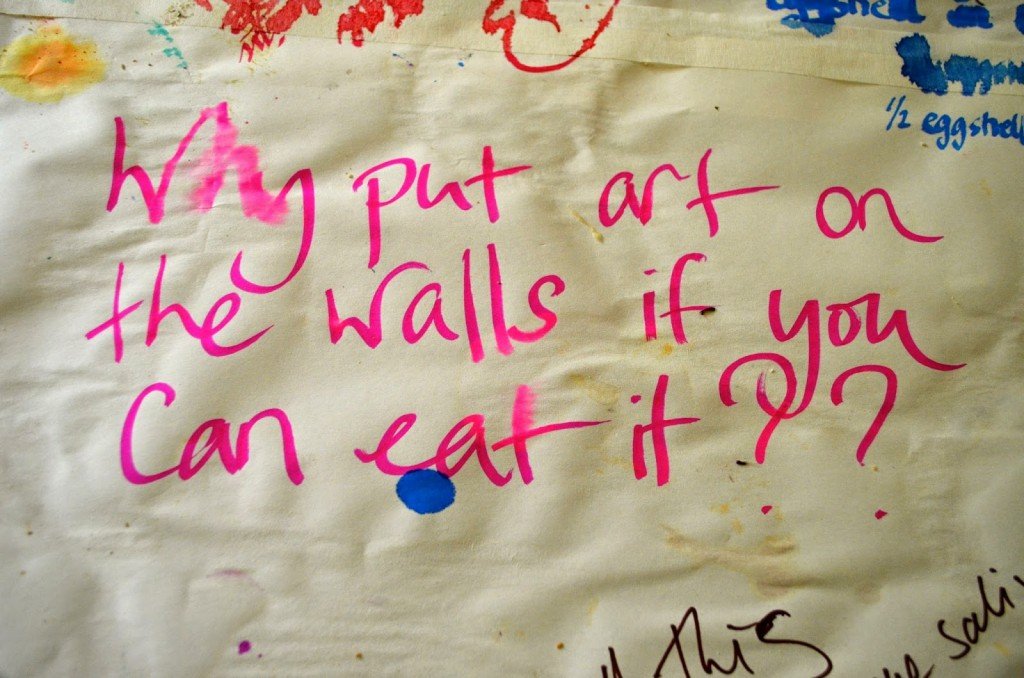 eggshell in
1/2 eggshell
Why put art on
the walls if you
Can eat it??
this